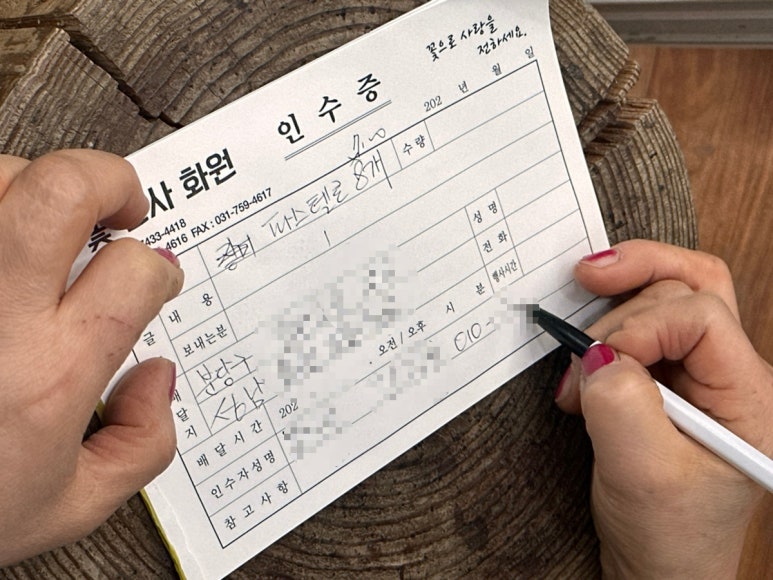 꽃으로 사랑을
전하세요.
인 수 증
202 년 월 일
사 화원
433-4418
4616 FAX : 031-759-4617
장미 파스텔로 8개
수 량
글 내 용
보내는분
성 명
전 화
행사시간
배 달 지
분당구
성남
오전 / 오후 시 분
010-
배 달 시 간
202
인수자성명
참 고 사 항